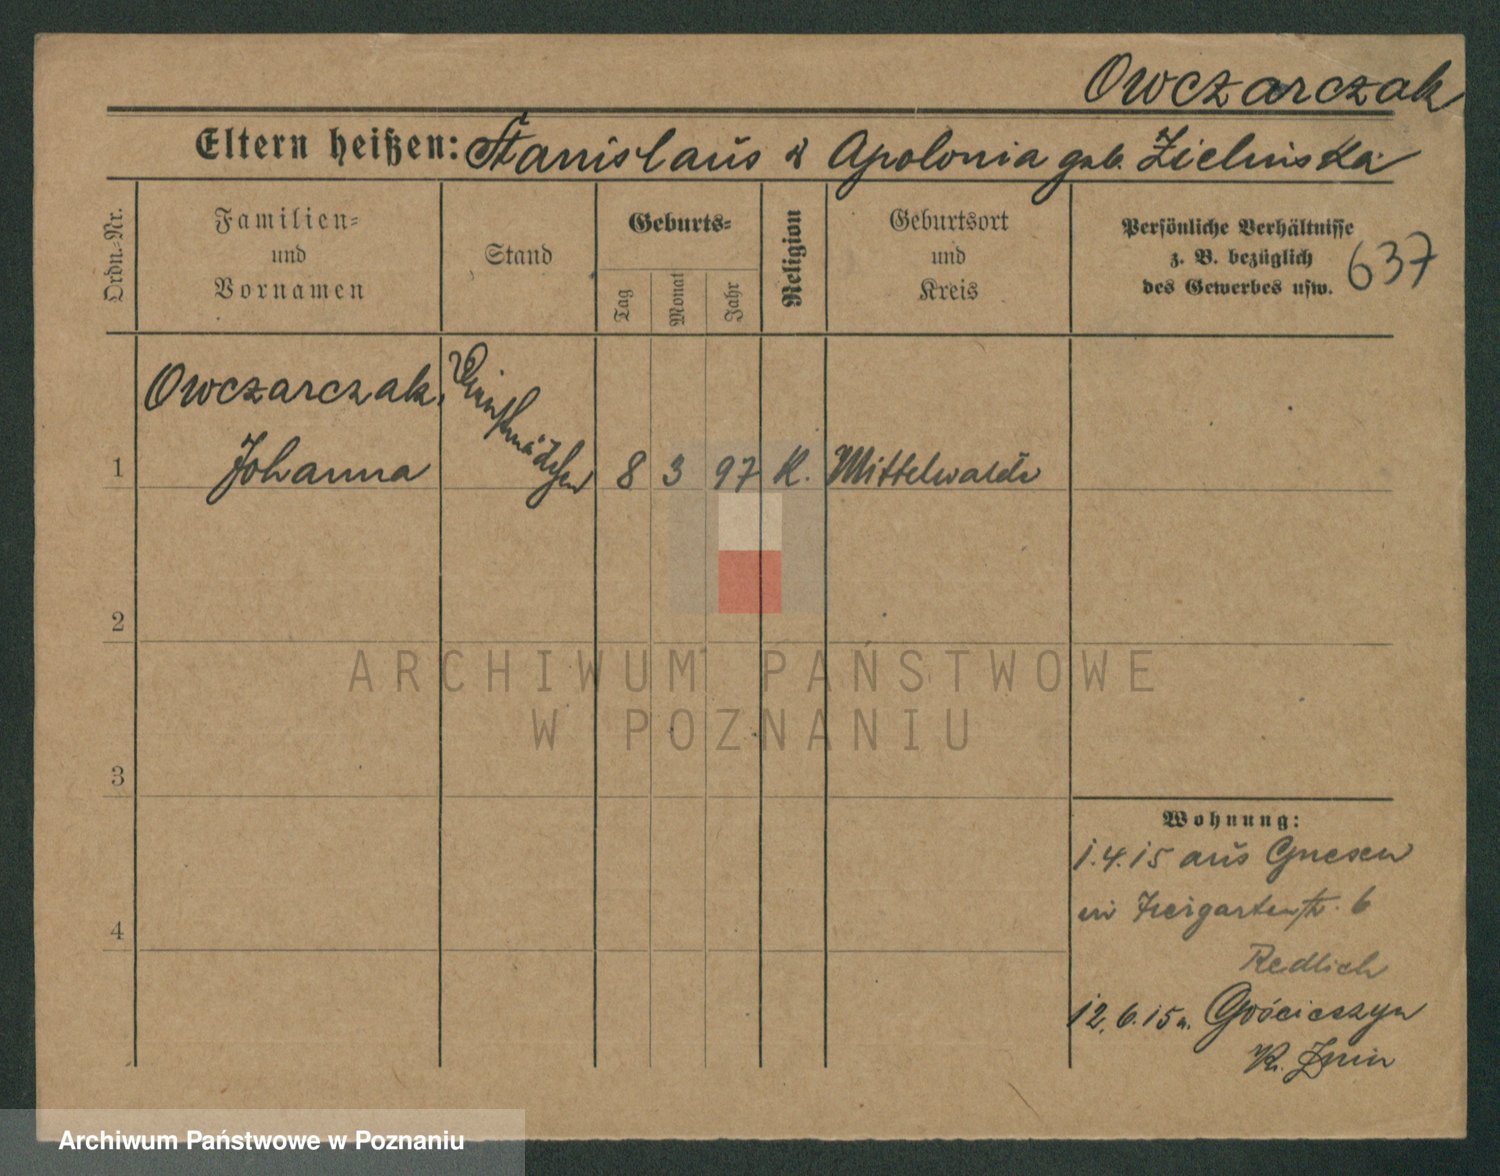 Owczarczak
Eltern heißen: Stanislaus & Apolonia geb. Zielinska
Ordn.=Nr.
Familien=
und
Vornamen
Stand
Geburts=
Tag
Monat
Jahr
Religion
Geburtsort
und
Kreis
Persönliche Verhältnisse
z. B. bezüglich
des Gewerbes usw.
637
Owczarczak,
Johanna
Dienstmädchen
1
8 3 97 K. Mittelwalde
2
3
4
ARCHIWUM PAŃSTWOWE
W POZNANIU
Wohnung:
1.4.15 aus Gnesen
6
Redlich
12.6.15 n. Gościeszyn
Kr. Znin
Archiwum Państwowe w Poznaniu